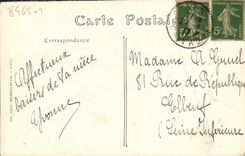 8565-9
Carte Postale
Correspondance
Affectueux
baisers de Sa nièce
Yvonne
Madame A
81 Rue de République
Elbeuf
(Seine Inférieure
5
5